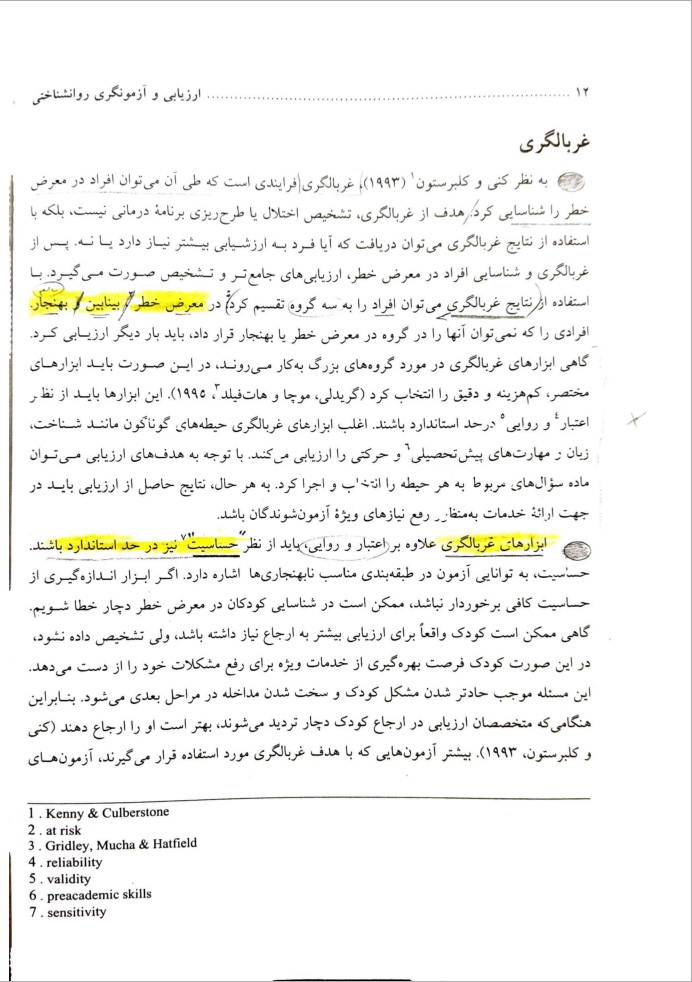 ۱۲ ........................................................ ارزیابی و آزمونگری روانشناختی
غربالگری
به نظر کنی و کلبرستون۱ (۱۹۹۳)، غربالگری فرایندی است که طی آن می‌توان افراد در معرض
خطر را شناسایی کرد. هدف از غربالگری، تشخیص اختلال یا طرح‌ریزی برنامهٔ درمانی نیست، بلکه با
استفاده از نتایج غربالگری می‌توان دریافت که آیا فرد به ارزشیابی بیشتر نیاز دارد یا نه. پس از
غربالگری و شناسایی افراد در معرض خطر، ارزیابی‌های جامع‌تر و تشخیص صورت می‌گیرد. با
استفاده از نتایج غربالگری می‌توان افراد را به سه گروه تقسیم کرد: در معرض خطر۲، بینابین و بهنجار.
افرادی را که نمی‌توان آنها را در گروه در معرض خطر یا بهنجار قرار داد، باید بار دیگر ارزیابی کرد.
گاهی ابزارهای غربالگری در مورد گروه‌های بزرگ به‌کار می‌روند، در این صورت باید ابزارهای
مختصر، کم‌هزینه و دقیق را انتخاب کرد (گریدلی، موچا و هات‌فیلد۳، ۱۹۹۵). این ابزارها باید از نظر
اعتبار۴ و روایی۵ درحد استاندارد باشند. اغلب ابزارهای غربالگری حیطه‌های گوناگون مانند شناخت،
زبان و مهارت‌های پیش‌تحصیلی۶ و حرکتی را ارزیابی می‌کنند. با توجه به هدف‌های ارزیابی می‌توان
ماده سؤال‌های مربوط به هر حیطه را انتخاب و اجرا کرد. به هر حال، نتایج حاصل از ارزیابی باید در
جهت ارائهٔ خدمات به‌منظور رفع نیازهای ویژهٔ آزمون‌شوندگان باشد.
ابزارهای غربالگری علاوه بر اعتبار و روایی، باید از نظر "حساسیت"۷ نیز در حد استاندارد باشند.
حساسیت، به توانایی آزمون در طبقه‌بندی مناسب نابهنجاری‌ها اشاره دارد. اگر ابزار اندازه‌گیری از
حساسیت کافی برخوردار نباشد، ممکن است در شناسایی کودکان در معرض خطر دچار خطا شویم.
گاهی ممکن است کودک واقعاً برای ارزیابی بیشتر به ارجاع نیاز داشته باشد، ولی تشخیص داده نشود،
در این صورت کودک فرصت بهره‌گیری از خدمات ویژه برای رفع مشکلات خود را از دست می‌دهد.
این مسئله موجب حادتر شدن مشکل کودک و سخت شدن مداخله در مراحل بعدی می‌شود. بنابراین
هنگامی‌که متخصصان ارزیابی در ارجاع کودک دچار تردید می‌شوند، بهتر است او را ارجاع دهند (کنی
و کلبرستون، ۱۹۹۳). بیشتر آزمون‌هایی که با هدف غربالگری مورد استفاده قرار می‌گیرند، آزمون‌های
1 . Kenny & Culberstone
2 . at risk
3 . Gridley, Mucha & Hatfield
4 . reliability
5 . validity
6 . preacademic skills
7 . sensitivity